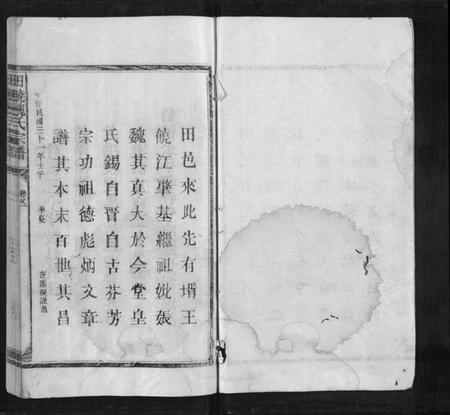 田邑來此先有壻王
饒江肇基繼祖妣張
魏其真大於今堂皇
氏錫自晋自古芬芳
宗功祖德彪炳文章
譜其本末百世其昌
民國三十一年壬午
田饒魏氏宗譜